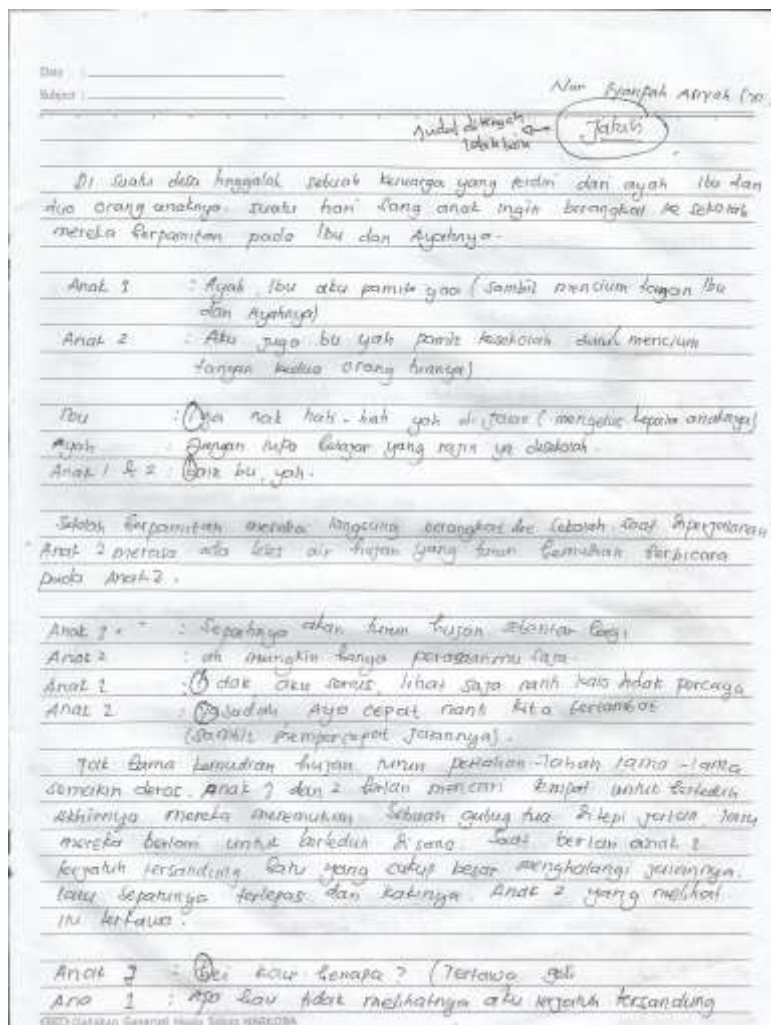 Date :
Subject :
Nur Syaripah Aisyah
Judul ditengah
Jatuh
Di suatu desa tinggalah sebuah keluarga yang terdiri dari ayah Ibu dan
dua orang anaknya. suatu hari Sang anak ingin berangkat ke sekolah
mereka berpamitan pada Ibu dan Ayahnya.
Anak 1 : Ayah, Ibu aku pamit yaa (sambil mencium tangan Ibu
dan Ayahnya)
Anak 2 : Aku juga bu yah pamit kesekolah dulu mencium
tangan kedua orang tuanya)
Ibu : Iya nak hati-hati yah di jalan (mengelus kepala anaknya)
Ayah : Jangan lupa belajar yang rajin ya disekolah.
Anak 1 & 2 : Baik bu, yah.
Setelah berpamitan mereka langsung berangkat ke sekolah saat diperjalanan
Anak 2 merasa ada tetes air hujan yang turun kemudian berbicara
pada Anak 2.
Anak 1 : Sepertinya akan turun hujan sebentar lagi
Anak 2 : ah mungkin hanya perasaanmu saja.
Anak 1 : tidak aku serius, lihat saja nanti kalo tidak percaya
Anak 2 : Ya sudah Ayo cepat nanti kita terlambat
(sambil mempercepat jalannya).
Tak lama kemudian hujan turun perlahan-lahan lama-lama
semakin deras. Anak 1 dan 2 berlari mencari tempat untuk berteduh
akhirnya mereka menemukan sebuah gubug tua di tepi jalan, lalu
mereka berlari untuk berteduh di sana. Saat berlari anak 1
terjatuh tersandung batu yang cukup besar menghalangi jalannya.
lalu Sepatunya terlepas dan kakinya. Anak 2 yang melihat
itu tertawa.
Anak 2 : hei kau kenapa? (Tertawa geli
Ana 1 : Apa kau tidak melihatnya aku terjatuh tersandung